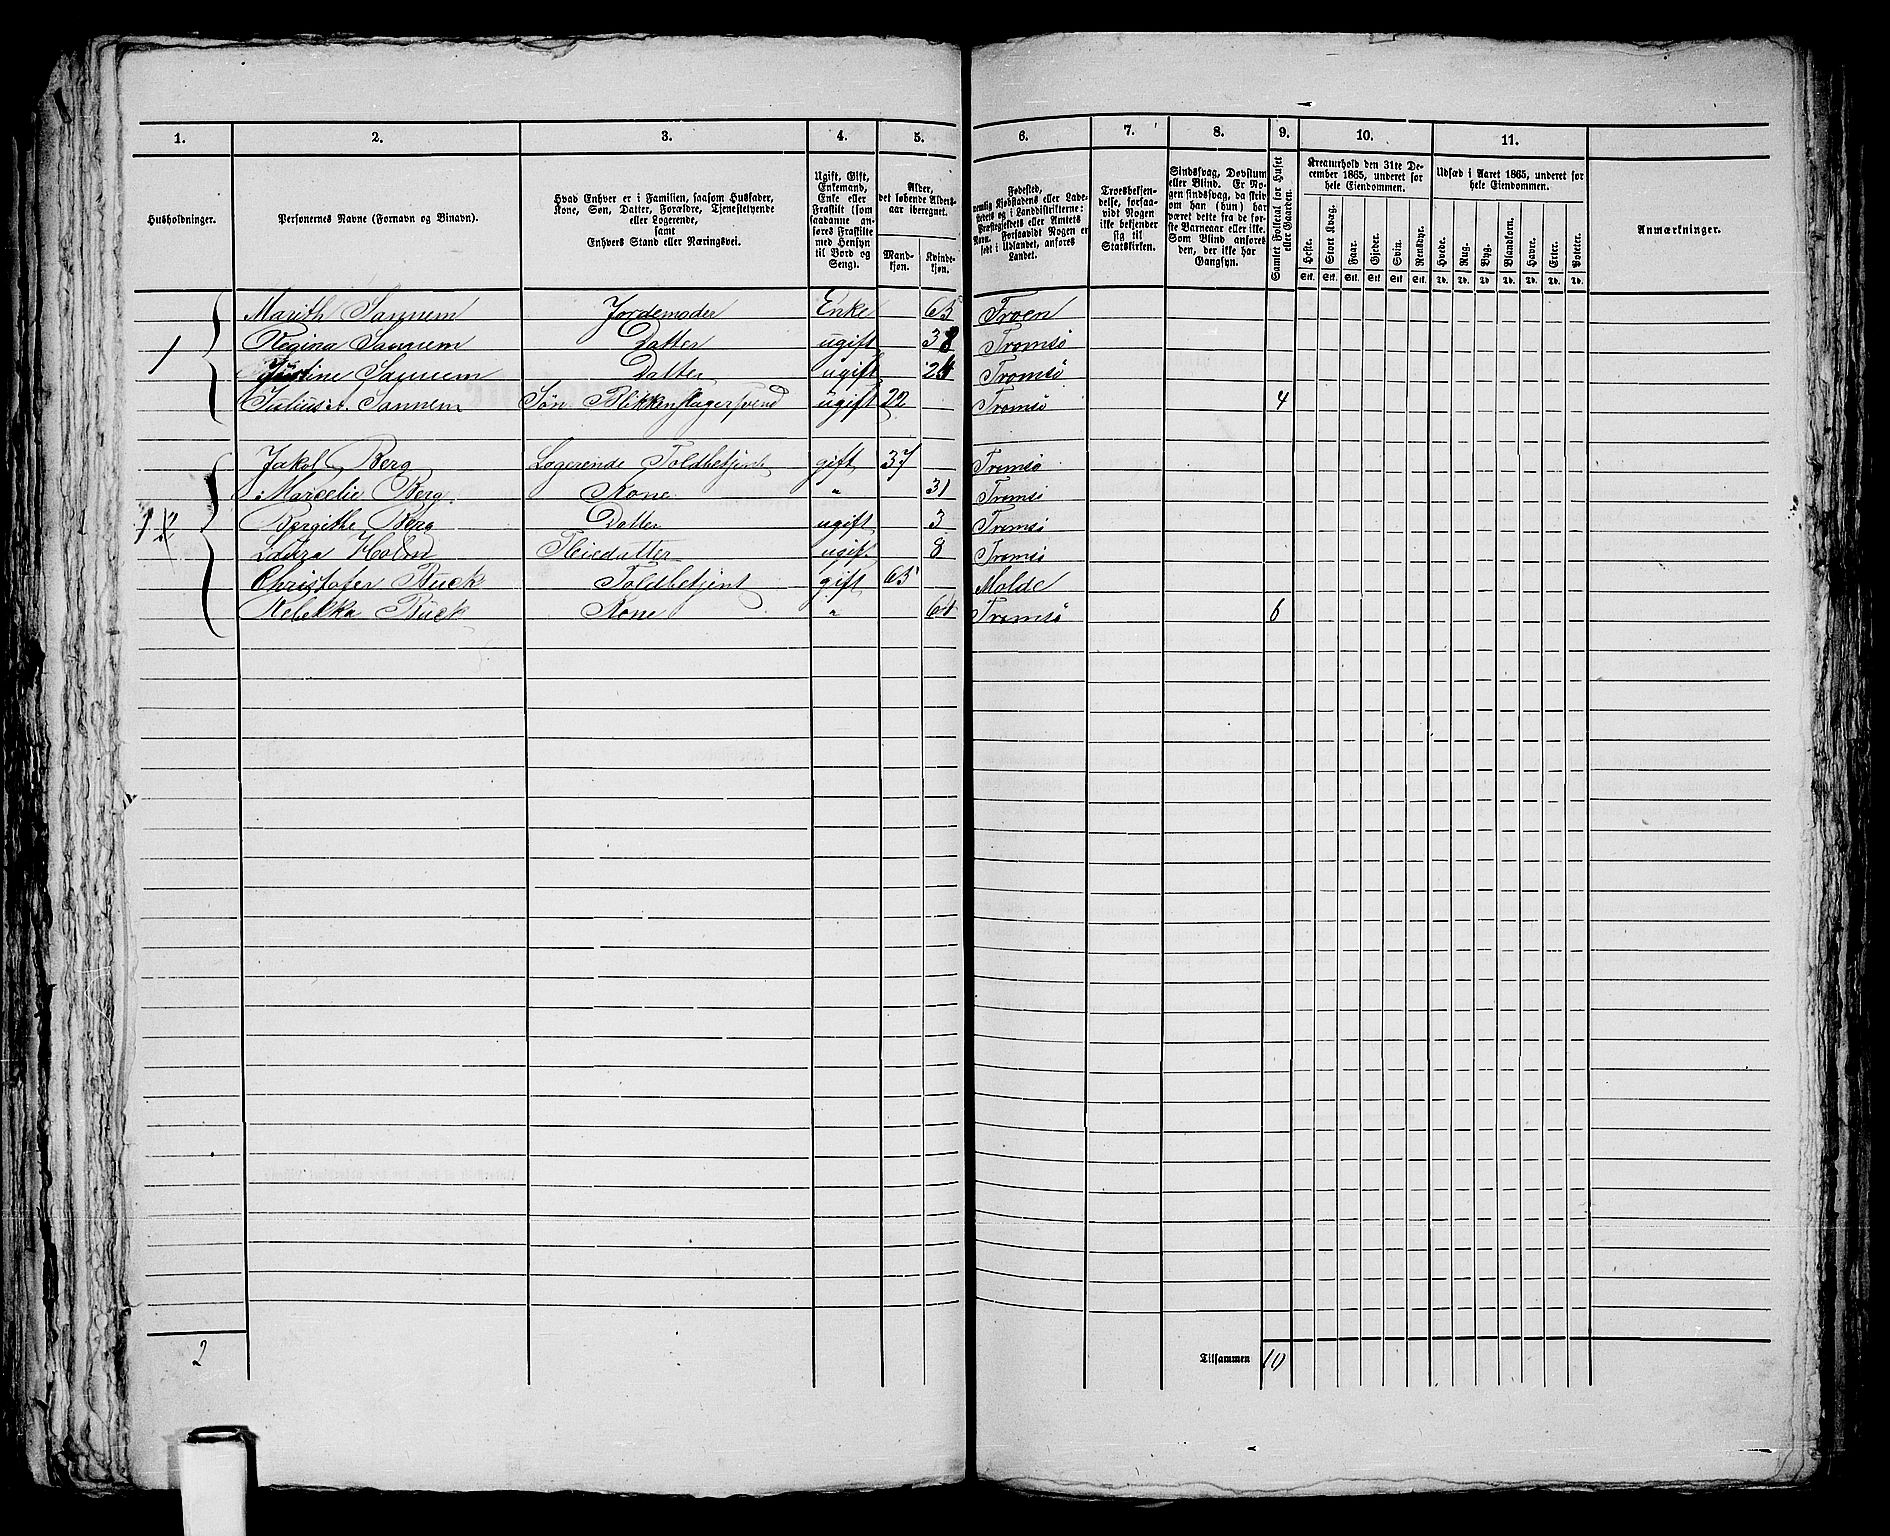 1. 2. 3. 4. 5. 6. 7. 8. 9. 10. 11.
Husholdninger.
Personernes Navne (Fornavn og Binavn).
Hvad Enhver er i Familien, saasom Husfader,
Kone, Søn, Datter, Forældre, Tjenestetyende
eller Logerende,
samt
Enhvers Stand eller Næringsvei.
Ugift, Gift,
Enkemand,
Enke eller
Fraskilt (som
saadanne an-
føres Fraskilte
med Hensyn
til Bord og
Seng).
Alder,
det løbende Alders-
aar iberegnet.
Mand-
kjøn.
Kvinde-
kjøn.
Fødested,
nemlig Kjøbstadens eller Lade-
stedets og i Landdistrikterne:
Præstegjeldets eller Amtets
Navn. Forsaavidt Nogen er
født i Udlandet, anføres
Landet.
Troesbekjen-
delse, forsaa-
vidt Nogen
ikke bekjender
sig til
Statskirken.
Sindssvag, Døvstum
eller Blind. Er No-
gen sindssvag, da skriv
om han (hun) har
været dette fra de før-
ste Barneaar eller ikke.
Som Blind anføres
den, der ikke har
Gangsyn.
Samlet Folketal for Huset
eller Gaarden.
Kreaturhold den 31te De-
cember 1865, underet for
hele Eiendommen.
Heste. Stort Kvæg. Faar. Gjeder. Svin. Rensdyr.
Stk. Stk. Stk. Stk. Stk. Stk.
Udsæd i Aaret 1865, underet for
hele Eiendommen.
Hvede. Rug. Byg. Blandkorn. Havre. Erter. Poteter.
Td. Td. Td. Td. Td. Td. Td.
Anmærkninger.
1 Marith Sannem Jordemoder Enke 65 Troen
Regina Sannem Datter ugift 38 Tromsø
Justine Sannem Datter ugift 24 Tromsø
Julius A. Sannem Søn Blikkenslagersvend ugift 22 Tromsø 4
Jakob Berg Logerende Toldbetjent gift 37 Tromsø
Marcelie Berg Kone " 31 Tromsø
1 Bergithe Berg Datter ugift 3 Tromsø
Laura Holm Pleiedatter ugift 8 Tromsø
Christofer Buck Toldbetjent gift 65 Molde
Rebekka Buck Kone " 61 Tromsø 6
2
Tilsammen 10